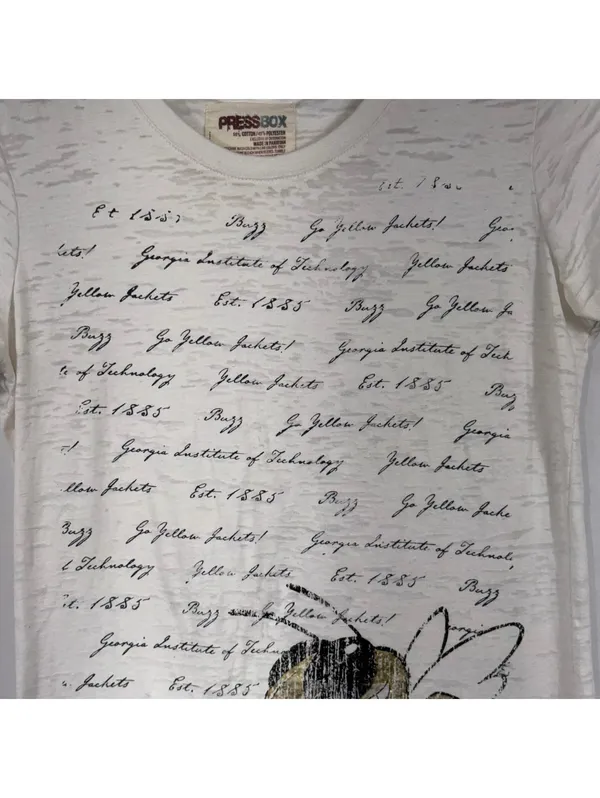 PRESSBOX
60% COTTON/40% POLYESTER
MADE IN PAKISTAN
Est. 188
Et 1885 Buzz Go Yellow Jackets! Geor
kets! Georgia Institute of Technology Yellow Jackets
Yellow Jackets Est. 1885 Buzz Go Yellow Ja
Buzz Go Yellow Jackets! Georgia Institute of Tech
te of Technology Yellow Jackets Est. 1885 Buzz
Est. 1885 Buzz Go Yellow Jackets! Georgia
s! Georgia Institute of Technology Yellow Jackets
llow Jackets Est. 1885 Buzz Go Yellow Jacke
Buzz Go Yellow Jackets! Georgia Institute of Technolo
l Technology Yellow Jackets Est. 1885 Buzz
st. 1885 Buzz Go Yellow Jackets! eorgia
Georgia Institute of Techno
Jackets Est. 1885